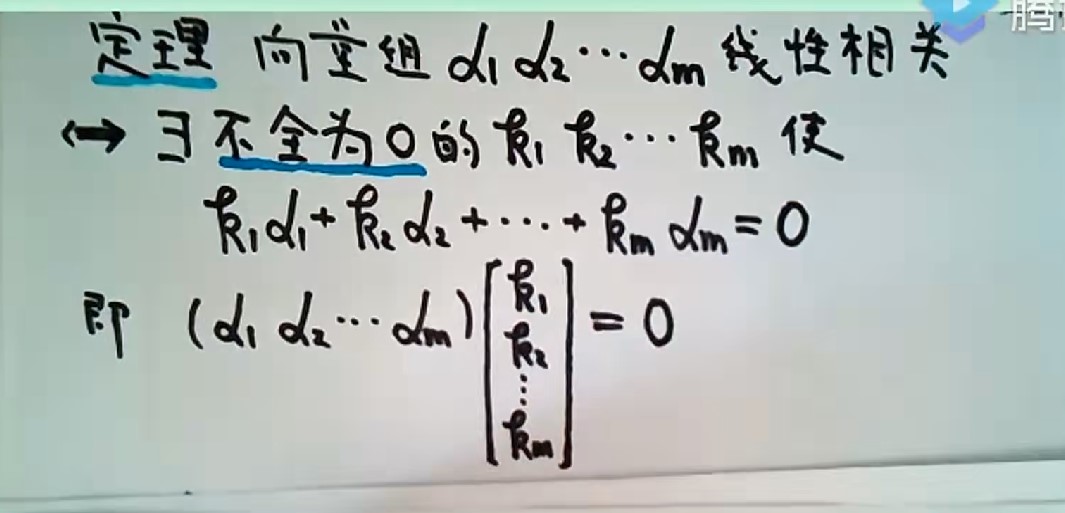 定理 向量组 α₁ α₂ ⋯ αₘ 线性相关
↔ ∃ 不全为0的 k₁ k₂ ⋯ kₘ 使
k₁α₁ + k₂α₂ + ⋯ + kₘαₘ = 0
即 (α₁ α₂ ⋯ αₘ) [k₁ k₂ ⋮ kₘ] = 0
腾